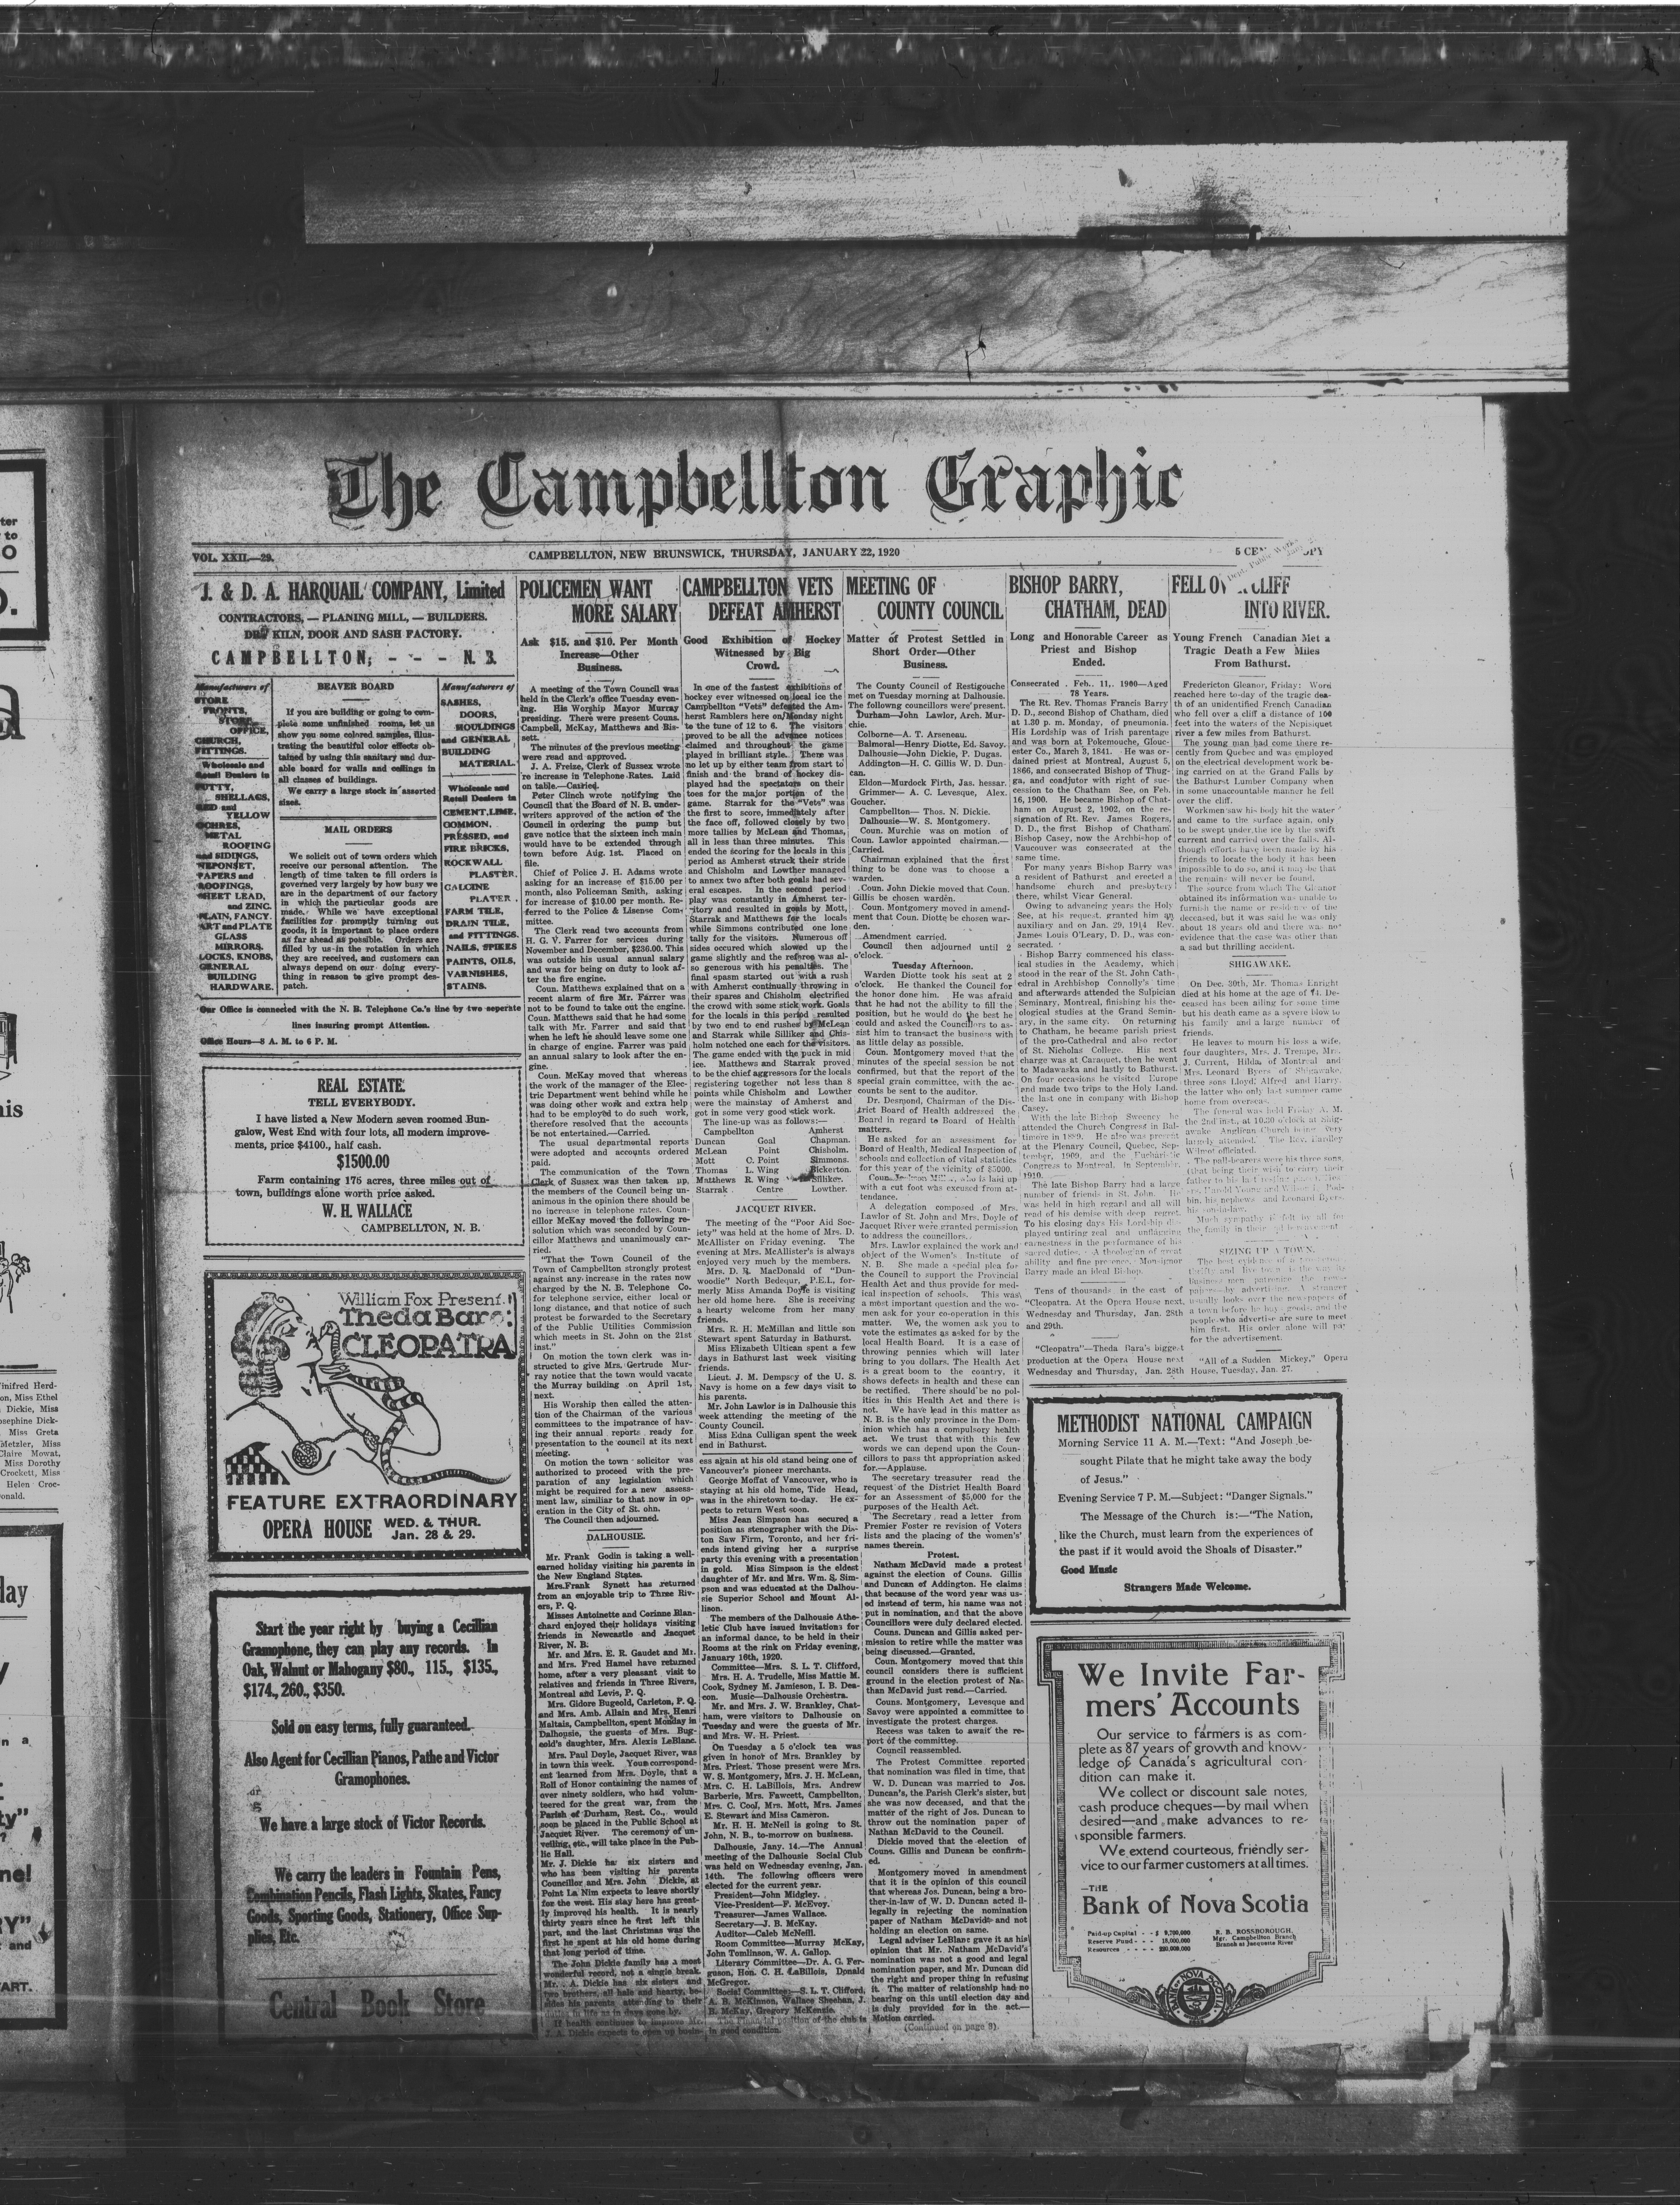 The Campbellton Graphic
VOL. XXII.—29.
CAMPBELLTON, NEW BRUNSWICK, THURSDAY, JANUARY 22, 1920
J. & D. A. HARQUAIL COMPANY, Limited
CONTRACTORS, — PLANING MILL, — BUILDERS.
DRY KILN, DOOR AND SASH FACTORY.
CAMPBELLTON, - - - N. B.
Manufacturers of
STORE
FRONTS,
STORE
OFFICE,
CHURCH,
FITTINGS.
Wholesale and
Retail Dealers in
PUTTY,
SHELLACS,
RED and
YELLOW
OCHRES,
METAL
ROOFING
and SIDINGS,
NEPONSET,
PAPERS and
ROOFINGS,
SHEET LEAD,
and ZINC.
PLAIN, FANCY.
ART and PLATE
GLASS
MIRRORS.
LOCKS, KNOBS,
GENERAL
BUILDING
HARDWARE.
BEAVER BOARD
If you are building or going to com-
plete some unfinished rooms, let us
show you some colored samples, illus-
trating the beautiful color effects ob-
tained by using this sanitary and dur-
able board for walls and ceilings in
all classes of buildings.
We carry a large stock in asserted
sizes.
MAIL ORDERS
We solicit out of town orders which
receive our personal attention. The
length of time taken to fill orders is
governed very largely by how busy we
are in the department of our factory
in which the particular goods are
made. While we have exceptional
facilities for promptly turning out
goods, it is important to place orders
as far ahead as possible. Orders are
filled by us in the rotation in which
they are received, and customers can
always depend on our doing every-
thing in reason to give prompt des-
patch.
Manufacturers of
SASHES,
DOORS,
MOULDINGS
and GENERAL
BUILDING
MATERIAL.
Wholesale and
Retail Dealers in
CEMENT, LIME,
COMMON,
PRESSED, and
FIRE BRICKS,
ROCKWALL
PLASTER.
CALCINE
PLATER
FARM TILE,
DRAIN TILE,
and FITTINGS.
NAILS, SPIKES
PAINTS, OILS,
VARNISHES,
STAINS.
Our Office is connected with the N. B. Telephone Co.'s line by two seperate
lines insuring prompt Attention.
Office Hours—8 A. M. to 6 P. M.
REAL ESTATE.
TELL EVERYBODY.
I have listed a New Modern seven roomed Bun-
galow, West End with four lots, all modern improve-
ments, price $4100., half cash.
$1500.00
Farm containing 175 acres, three miles out of
town, buildings alone worth price asked.
W. H. WALLACE
CAMPBELLTON, N. B.
William Fox Present
Theda Bara
CLEOPATRA
FEATURE EXTRAORDINARY
OPERA HOUSE WED. & THUR.
Jan. 28 & 29.
Start the year right by buying a Cecillian
Gramophone, they can play any records. In
Oak, Walnut or Mahogany $80., 115., $135.,
$174., 260., $350.
Sold on easy terms, fully guaranteed.
Also Agent for Cecillian Pianos, Pathe and Victor
Gramophones.
We have a large stock of Victor Records.
We carry the leaders in Fountain Pens,
Combination Pencils, Flash Lights, Skates, Fancy
Goods, Sporting Goods, Stationery, Office Sup-
plies, Etc.
Central Book Store
POLICEMEN WANT
MORE SALARY
Ask $15. and $10. Per Month
Increase—Other
Business.
A meeting of the Town Council was
held in the Clerk's office Tuesday even-
ing. His Worship Mayor Murray
presiding. There were present Couns.
Campbell, McKay, Matthews and Bis-
sett.
The minutes of the previous meeting
were read and approved.
J. A. Freize, Clerk of Sussex wrote
're increase in Telephone Rates. Laid
on table.—Carried.
Peter Clinch wrote notifying the
Council that the Board of N. B. under-
writers approved of the action of the
Council in ordering the pump but
gave notice that the sixteen inch main
would have to be extended through
town before Aug. 1st. Placed on
file.
Chief of Police J. H. Adams wrote
asking for an increase of $15.00 per
month, also Policeman Smith, asking
for increase of $10.00 per month. Re-
ferred to the Police & Lisense Com-
mittee.
The Clerk read two accounts from
H. G. V. Farrer for services during
November and December, $236.00. This
was outside his usual annual salary
and was for being on duty to look af-
ter the fire engine.
Coun. Matthews explained that on a
recent alarm of fire Mr. Farrer was
not to be found to take out the engine.
Coun. Matthews said that he had some
talk with Mr. Farrer and said that
when he left he should leave some one
in charge of engine. Farrer was paid
an annual salary to look after the en-
gine.
Coun. McKay moved that whereas
the work of the manager of the Elec-
tric Department went behind while he
was doing other work and extra help
had to be employed to do such work,
therefore resolved that the accounts
be not entertained.—Carried.
The usual departmental reports
were adopted and accounts ordered
paid.
The communication of the Town
Clerk of Sussex was then taken up,
the members of the Council being un-
animous in the opinion there should be
no increase in telephone rates. Coun-
cillor McKay moved the following re-
solution which was seconded by Coun-
cillor Matthews and unanimously car-
ried.
"That the Town Council of the
Town of Campbellton strongly protest
against any increase in the rates now
charged by the N. B. Telephone Co.
for telephone service, either local or
long distance, and that notice of such
protest be forwarded to the Secretary
of the Public Utilities Commission
which meets in St. John on the 21st
inst."
On motion the town clerk was in-
structed to give Mrs. Gertrude Mur-
ray notice that the town would vacate
the Murray building on April 1st,
next.
His Worship then called the atten-
tion of the Chairman of the various
committees to the impotrance of hav-
ing their annual reports ready for
presentation to the council at its next
meeting.
On motion the town solicitor was
authorized to proceed with the pre-
paration of any legislation which
might be required for a new assess-
ment law, similiar to that now in op-
eration in the City of St. ohn.
The Council then adjourned.
DALHOUSIE.
Mr. Frank Godin is taking a well-
earned holiday visiting his parents in
the New England States.
Mrs. Frank Synett has returned
from an enjoyable trip to Three Riv-
ers, P. Q.
Misses Antoinette and Corinne Blan-
chard enjoyed their holidays visiting
friends in Newcastle and Jacquet
River, N. B.
Mr. and Mrs. E. R. Gaudet and Mr.
and Mrs. Fred Hamel have returned
home, after a very pleasant visit to
relatives and friends in Three Rivers,
Montreal and Levis, P. Q.
Mrs. Gidore Bugeold, Carleton, P. Q.
and Mrs. Amb. Allain and Mrs. Henri
Maltais, Campbellton, spent Monday in
Dalhopsie, the guests of Mrs. Bug-
eold's daughter, Mrs. Alexis LeBlanc.
Mrs. Paul Doyle, Jacquet River, was
in town this week. Your correspond-
ent learned from Mrs. Doyle, that a
Roll of Honor containing the names of
over ninety soldiers, who had volun-
teered for the great war, from the
Parish of Durham, Rest. Co., would
soon be placed in the Public School at
Jacquet River. The ceremony of un-
veiling, etc., will take place in the Pub-
lic Hall.
Mr. J. Dickie has six sisters and
who has been visiting his parents
Councillor and Mrs. John Dickie, at
Point La Nim expects to leave shortly
for the west. His stay here has great-
ly improved his health. It is nearly
thirty years since he first left this
part, and the last Christmas was the
first he spent at his old home during
that long period of time.
The John Dickie family has a most
wonderful record, not a single break.
Mr. A. Dickie has six sisters and
two brothers, all hale and hearty, be-
sides his parents attending to their
If health continues to improve Mr.
J. A. Dickie expects to open up busin-
CAMPBELLTON VETS
DEFEAT AMHERST
Good Exhibition of Hockey
Witnessed by Big
Crowd.
In one of the fastest exhibitions of
hockey ever witnessed on local ice the
Campbellton "Vets" defeated the Am-
herst Ramblers here on Monday night
to the tune of 12 to 6. The visitors
proved to be all the advance notices
claimed and throughout the game
played in brilliant style. There was
no let up by either team from start to
finish and the brand of hockey dis-
played had the spectators on their
toes for the major portion of the
game. Starrak for the "Vets" was
the first to score, immediately after
the face off, followed closely by two
more tallies by McLean and Thomas,
all in less than three minutes. This
ended the scoring for the locals in this
period as Amherst struck their stride
and Chisholm and Lowther managed
to annex two after both goals had sev-
eral escapes. In the second period
play was constantly in Amherst ter-
ritory and resulted in goals by Mott,
Starrak and Matthews for the locals
while Simmons contributed one lone
tally for the visitors. Numerous off
sides occured which slowed up the
game slightly and the referee was al-
so generous with his penalties. The
final spasm started out with a rush
with Amherst continually throwing in
their spares and Chisholm electrified
the crowd with some stick work. Goals
for the locals in this period resulted
by two end to end rushes by McLean
and Starrak while Silliker and Chis-
holm notched one each for the visitors.
The game ended with the puck in mid
ice. Matthews and Starrak proved
to be the chief aggressors for the locals
registering together not less than 8
points while Chisholm and Lowther
were the mainstay of Amherst and
got in some very good stick work.
The line-up was as follows:—
Campbellton Amherst
Duncan Goal Chapman.
McLean Point Chisholm.
Mott C. Point Simmons.
Thomas L. Wing Bickerton.
Matthews R. Wing Silliker.
Starrak Centre Lowther.
JACQUET RIVER.
The meeting of the "Poor Aid Soc-
iety" was held at the home of Mrs. D.
McAllister on Friday evening. The
evening at Mrs. McAllister's is always
enjoyed very much by the members.
Mrs. D. R. MacDonald of "Dun-
woodie" North Bedequr, P.E.I., for-
merly Miss Amanda Doyle is visiting
her old home here. She is receiving
a hearty welcome from her many
friends.
Mrs. R. H. McMillan and little son
Stewart spent Saturday in Bathurst.
Miss Elizabeth Ultican spent a few
days in Bathurst last week visiting
friends.
Lieut. J. M. Dempscy of the U. S.
Navy is home on a few days visit to
his parents.
Mr. John Lawlor is in Dalhousie this
week attending the meeting of the
County Council.
Miss Edna Culligan spent the week
end in Bathurst.
ess again at his old stand being one of
Vancouver's pioneer merchants.
George Moffat of Vancouver, who is
staying at his old home, Tide Head,
was in the shiretown to-day. He ex-
pects to return West soon.
Miss Jean Simpson has secured a
position as stenographer with the Dis-
ton Saw Firm, Toronto, and her fri-
ends intend giving her a surprise
party this evening with a presentation
in gold. Miss Simpson is the eldest
daughter of Mr. and Mrs. Wm. S. Sim-
pson and was educated at the Dalhou-
sie Superior School and Mount Al-
lison.
The members of the Dalhousie Athe-
letic Club have issued invitations for
an informal dance, to be held in their
Rooms at the rink on Friday evening,
January 16th, 1920.
Committee—Mrs. S. L. T. Clifford,
Mrs. H. A. Trudelle, Miss Mattie M.
Cook, Sydney M. Jamieson, I. B. Dea-
con. Music—Dalhousie Orchestra.
Mr. and Mrs. J. W. Brankley, Chat-
ham, were visitors to Dalhousie on
Tuesday and were the guests of Mr.
and Mrs. W. H. Priest.
On Tuesday a 5 o'clock tea was
given in honor of Mrs. Brankley by
Mrs. Priest. Those present were Mrs.
W. S. Montgomery, Mrs. J. H. McLean,
Mrs. C. H. LaBillois, Mrs. Andrew
Barberie, Mrs. Fawcett, Campbellton,
Mrs. C. Cool, Mrs. Mott, Mrs. James
E. Stewart and Miss Cameron.
Mr. H. H. McNeil is going to St.
John, N. B., to-morrow on business.
Dalhousie, Jany. 14.—The Annual
meeting of the Dalhousie Social Club
was held on Wednesday evening, Jan.
14th. The following officers were
elected for the current year.
President—John Midgley.
Vice-President—F. McEvoy.
Treasurer—James Wallace.
Secretary—J. B. McKay.
Auditor—Caleb McNeill.
Room Committee—Murray McKay,
John Tomlinson, W. A. Gallop.
Literary Committee—Dr. A. G. Fer-
guson, Hon. C. H. LaBillois, Donald
McGregor.
Social Committee—S. L. T. Clifford,
A. B. McKinnon, Wallace Sheehan, J.
B. McKay, Gregory McKenzie.
The Financial position of the club is
in good condition.
MEETING OF
COUNTY COUNCIL
Matter of Protest Settled in
Short Order—Other
Business.
The County Council of Restigouche
met on Tuesday morning at Dalhousie.
The followng councillors were present.
Durham—John Lawlor, Arch. Mur-
chie.
Colborne—A. T. Arseneau.
Balmoral—Henry Diotte, Ed. Savoy.
Dalhousie—John Dickie, P. Dugas.
Addington—H. C. Gillis W. D. Dun-
can.
Eldon—Murdock Firth, Jas. hessar.
Grimmer— A. C. Levesque, Alex.
Goucher.
Campbellton— Thos. N. Dickie.
Dalhousie—W. S. Montgomery.
Coun. Murchie was on motion of
Coun. Lawlor appointed chairman.—
Carried.
Chairman explained that the first
thing to be done was to choose a
warden.
Coun. John Dickie moved that Coun.
Gillis be chosen warden.
Coun. Montgomery moved in amend-
ment that Coun. Diotte be chosen war-
den.
Amendment carried.
Council then adjourned until 2
o'clock.
Tuesday Afternoon.
Warden Diotte took his seat at 2
o'clock. He thanked the Council for
the honor done him. He was afraid
that he had not the ability to fill the
position, but he would do the best he
could and asked the Councillors to as-
sist him to transact the business with
as little delay as possible.
Coun. Montgomery moved that the
minutes of the special session be not
confirmed, but that the report of the
special grain committee, with the ac-
counts be sent to the auditor.
Dr. Despond, Chairman of the Dis-
trict Board of Health addressed the
Board in regard to Board of Health
matters.
He asked for an assessment for
Board of Health, Medical Inspection of
schools and collection of vital statistics
for this year of the vicinity of $5000.
who is laid up
with a cut foot was excused from at-
tendance.
A delegation composed of Mrs.
Lawlor of St. John and Mrs. Doyle of
Jacquet River were granted permission
to address the councillors.
Mrs. Lawlor explained the work and
object of the Women's Institute of
N. B. She made a special plea for
the Council to support the Provincial
Health Act and thus provide for med-
ical inspection of schools. This was
a most important question and the wo-
men ask for your co-operation in this
matter. We, the women ask you to
vote the estimates as asked for by the
local Health Board. It is a case of
throwing pennies which will later
bring to you dollars. The Health Act
is a great boom to the country, it
shows defects in health and these can
be rectified. There should be no pol-
itics in this Health Act and there is
not. We have lead in this matter as
N. B. is the only province in the Dom-
inion which has a compulsory health
act. We trust that with this few
words we can depend upon the Coun-
cillors to pass tht appropriation asked
for.—Applause.
The secretary treasurer read the
request of the District Health Board
for an Assessment of $5,000 for the
purposes of the Health Act.
The Secretary read a letter from
Premier Foster re revision of Voters
lists and the placing of the women's'
names therein.
Protest.
Natham McDavid made a protest
against the election of Couns. Gillis
and Duncan of Addington. He claims
that because of the word year was us-
ed instead of term, his name was not
put in nomination, and that the above
Councillors were duly declared elected.
Couns. Duncan and Gillis asked per-
mission to retire while the matter was
being discussed.—Granted,
Coun. Montgomery moved that this
council considers there is sufficient
ground in the election protest of Na-
than McDavid just read.—Carried.
Couns. Montgomery, Levesque and
Savoy were appointed a committee to
investigate the protest charges.
Recess was taken to await the re-
port of the committee.
Council reassembled.
The Protest Committee reported
that nomination was filed in time, that
W. D. Duncan was married to Jos.
Duncan's, the Parish Clerk's sister, but
she was now deceased, and that the
matter of the right of Jos. Duncan to
throw out the nomination paper of
Nathan McDavid to the Council.
Dickie moved that the election of
Couns. Gillis and Duncan be confirm-
ed.
Montgomery moved in amendment
that it is the opinion of this council
that whereas Jos. Duncan, being a bro-
ther-in-law of W. D. Duncan acted il-
legally in rejecting the nomination
paper of Natham McDavid and not
holding an election on same.
Legal adviser LeBlanc gave it as his
opinion that Mr. Nathan McDavid's
nomination was not a good and legal
nomination paper, and Mr. Duncan did
the right and proper thing in refusing
it. The matter of relationship had no
bearing on this until election day and
is duly provided for in the act.—
Motion carried.
(Continued on page 8)
BISHOP BARRY,
CHATHAM, DEAD
Long and Honorable Career as
Priest and Bishop
Ended.
Consecrated Feb. 11, 1900—Aged
78 Years.
The Rt. Rev. Thomas Francis Barry
D. D., second Bishop of Chatham, died
at 1.30 p. m. Monday, of pneumonia.
His Lordship was of Irish parentage
and was born at Pokemouche, Glouc-
ester Co., March 3, 1841. He was or-
dained priest at Montreal, August 5,
1866, and consecrated Bishop of Thug-
ga, and coadjutor with right of suc-
cession to the Chatham See, on Feb.
16, 1900. He became Bishop of Chat-
ham on August 2, 1902, on the re-
signation of Rt. Rev. James Rogers,
D. D., the first Bishop of Chatham.
Bishop Casey, now the Archbishop of
Vancouver was consecrated at the
same time.
For many years Bishop Barry was
a resident of Bathurst and erected a
handsome church and presbytery
there, whilst Vicar General.
Owing to advancing years the Holy
See, at his request, granted him an
auxiliary and on Jan. 29, 1914 Rev.
James Louis O'Leary, D. D., was con-
secrated.
Bishop Barry commenced his class-
ical studies in the Academy, which
stood in the rear of the St. John Cath-
edral in Archbishop Connolly's time
and afterwards attended the Sulpician
Seminary, Montreal, finishing his the-
ological studies at the Grand Semin-
ary, in the same city. On returning
to Chatham, he became parish priest
of the pro-Cathedral and also rector
of St. Nicholas College. His next
charge was at Caraquet, then he went
to Madawaska and lastly to Bathurst.
On four occasions he visited Europe
and made two trips to the Holy Land,
the last one in company with Bishop
Casey.
With the late Bishop Sweeney he
attended the Church Congress in Bal-
timore in 1889. He also was present
at the Plenary Council, Quebec, Sep-
tember, 1909, and the Eucharistic
Congress to Montreal, in September,
1910.
The late Bishop Barry had a large
number of friends in St. John. He
was held in high regard and all will
read of his demise with deep regret.
To his closing days His Lordship dis-
played untiring zeal and unflagging
earnestness in the performance of his
sacred duties. A theologian of great
ability and fine presence, Monsignor
Barry made an ideal Bishop.
Tens of thousands in the east of
"Cleopatra. At the Opera House next,
Wednesday and Thursday, Jan. 28th
and 29th.
"Cleopatra"—Theda Bara's biggest
production at the Opera House next
Wednesday and Thursday, Jan. 28th
INTO RIVER.
Young French Canadian Met a
Tragic Death a Few Miles
From Bathurst.
Fredericton Gleanor, Friday: Word
reached here to-day of the tragic dea-
th of an unidentified French Canadian
who fell over a cliff a distance of 100
feet into the waters of the Nepisiquet
river a few miles from Bathurst.
The young man had come there re-
cently from Quebec and was employed
on the electrical development work be-
ing carried on at the Grand Falls by
the Bathurst Lumber Company when
in some unaccountable manner he fell
over the cliff.
Workmen saw his body hit the water
and came to the surface again, only
to be swept under the ice by the swift
current and carried over the falls. Al-
though efforts have been made by his
friends to locate the body it has been
impossible to do so, and it may be that
the remains will never be found.
The source from which The Gleanor
obtained its information was unable to
furnish the name or residence of the
deceased, but it was said he was only
about 18 years old and there was no
evidence that the case was other than
a sad but thrilling accident.
SHIGAWAKE.
On Dec. 30th, Mr. Thomas Enright
died at his home at the age of 71. De-
ceased has been ailing for some time
but his death came as a severe blow to
his family and a large number of
friends.
He leaves to mourn his loss a wife,
four daughters, Mrs. J. Trempe, Mrs.
J. Current, Hilda, of Montreal and
Mrs. Leonard Byers of Shigawake,
three sons Lloyd, Alfred and Harry,
the latter who only last summer came
home from overseas.
The funeral was held Friday A. M.
the 2nd inst., at 10.30 o'clock at Shig-
awake Anglican Church being very
largely attended. The Rev. Hardley
Wilmot officiated.
The pall-bearers were his three sons,
(that being their wish to carry their
bin, his nephews and Leonard Byers,
his son-in-law.
Much sympathy is felt by all for
the family in their sad bereavement
SIZING UP A TOWN.
usually looks over the newspapers of
a town before he buys goods, and the
people who advertise are sure to meet
him first. His order alone will pay
for the advertisement.
"All of a Sudden Mickey," Opera
House, Tuesday, Jan. 27.
METHODIST NATIONAL CAMPAIGN
Morning Service 11 A. M.—Text: "And Joseph be-
sought Pilate that he might take away the body
of Jesus."
Evening Service 7 P. M.—Subject: "Danger Signals."
The Message of the Church is:—"The Nation,
like the Church, must learn from the experiences of
the past if it would avoid the Shoals of Disaster."
Good Music
Strangers Made Welcome.
We Invite Far-
mers' Accounts
Our service to farmers is as com-
plete as 87 years of growth and know-
ledge of Canada's agricultural con-
dition can make it.
We collect or discount sale notes,
cash produce cheques—by mail when
desired—and make advances to re-
sponsible farmers.
We extend courteous, friendly ser-
vice to our farmer customers at all times.
—THE
Bank of Nova Scotia
Paid-up Capital - - $ 9,700,000
Reserve Fund - - - 18,000,000
Resources - - - - 220,000,000
R. B. ROSSBOROUGH,
Mgr. Campbellton Branch
Branch at Jacquette River